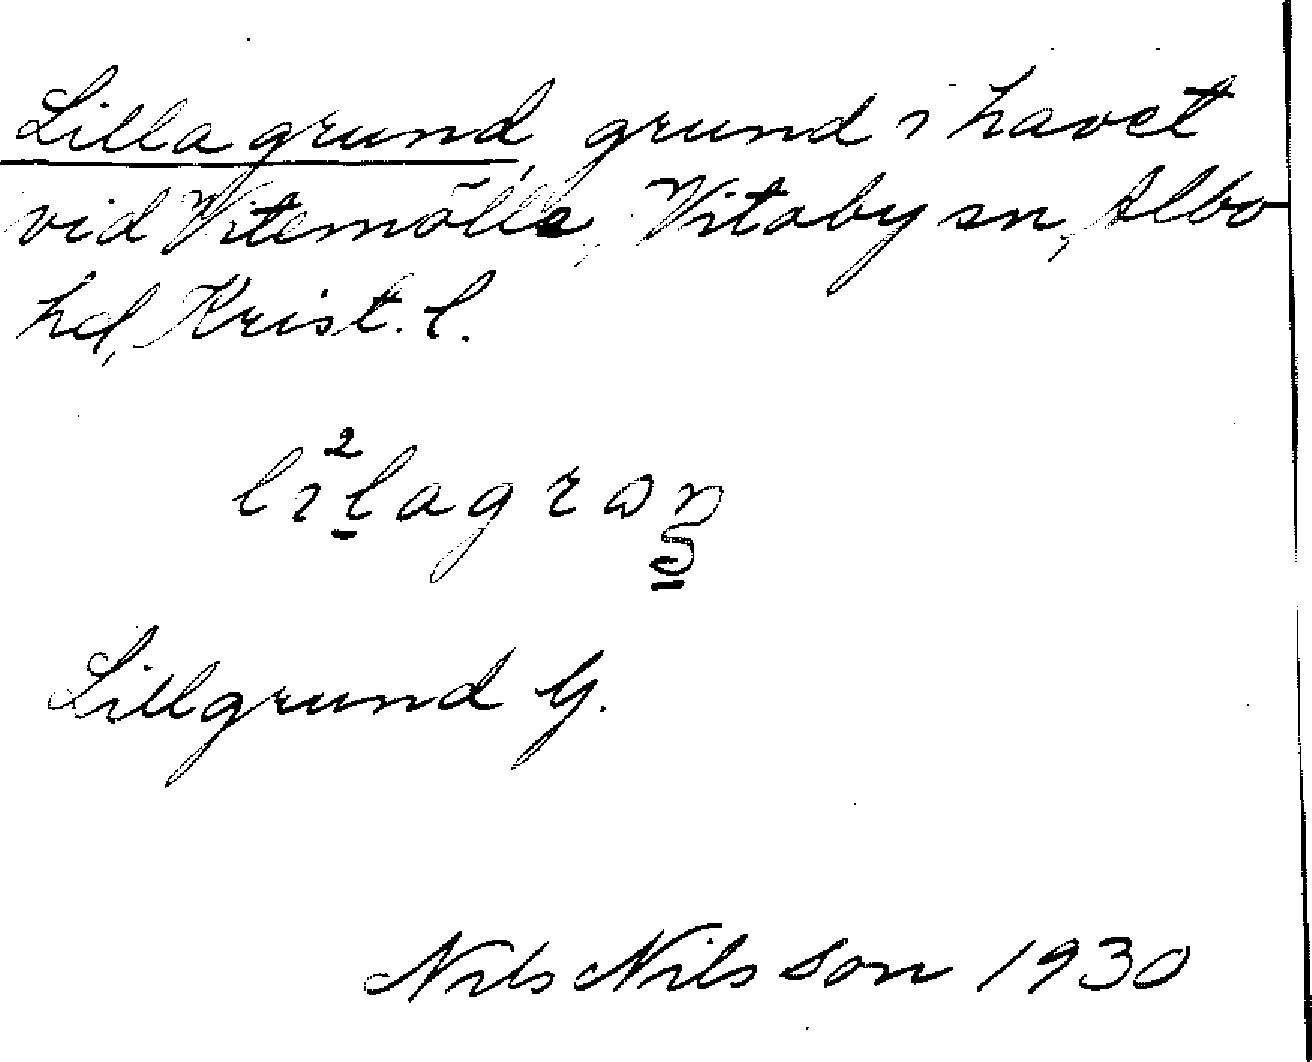 Lillagrund, grund i havet
vid Vitemölle, Vitaby sn, Albo
hd, Krist. l.
Lillgrund G.
Nils Nilsson 1930